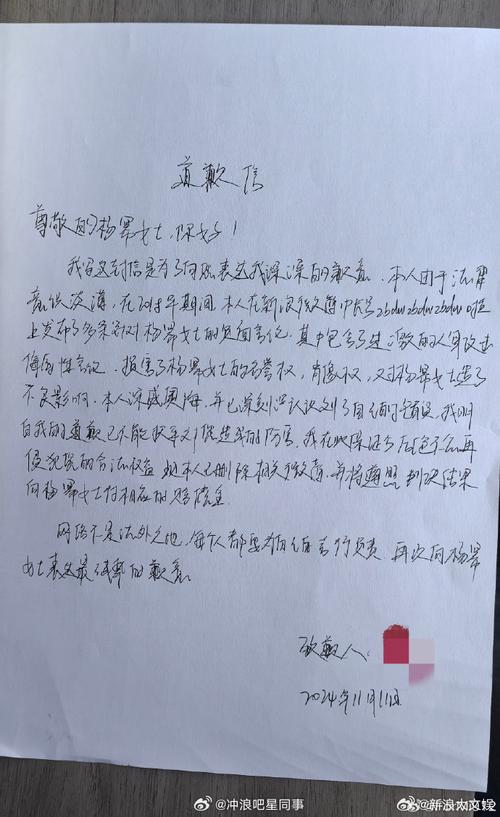 道歉信
尊敬的杨幂女士，你好！
我写这封信是为了向您表达我深深的歉意。本人由于法律
意识淡薄，在 期间，本人在新浪微博中 2bdw2bdw2bdw
上发布了多条针对杨幂女士的负面言论。其中包含了过激的人身攻击
侮辱性言论。损害了杨幂女士的名誉权，肖像权，对杨幂女士造成了
不良影响。本人深感后悔，并已深刻认识到了自己的错误，我明
白我的道歉已不能 对你造成的伤害。我在此保证今后绝不会再
侵犯您的合法权益 现本人已删除相关微博，并将遵照判决结果
向杨幂女士付相应的赔偿金
网络不是法外之地，每个人都要为自己的言行负责 再次向杨幂
女士表达最 的歉意
致歉人：
2024年11月11日
@冲浪吧星同事
@新浪大文娱